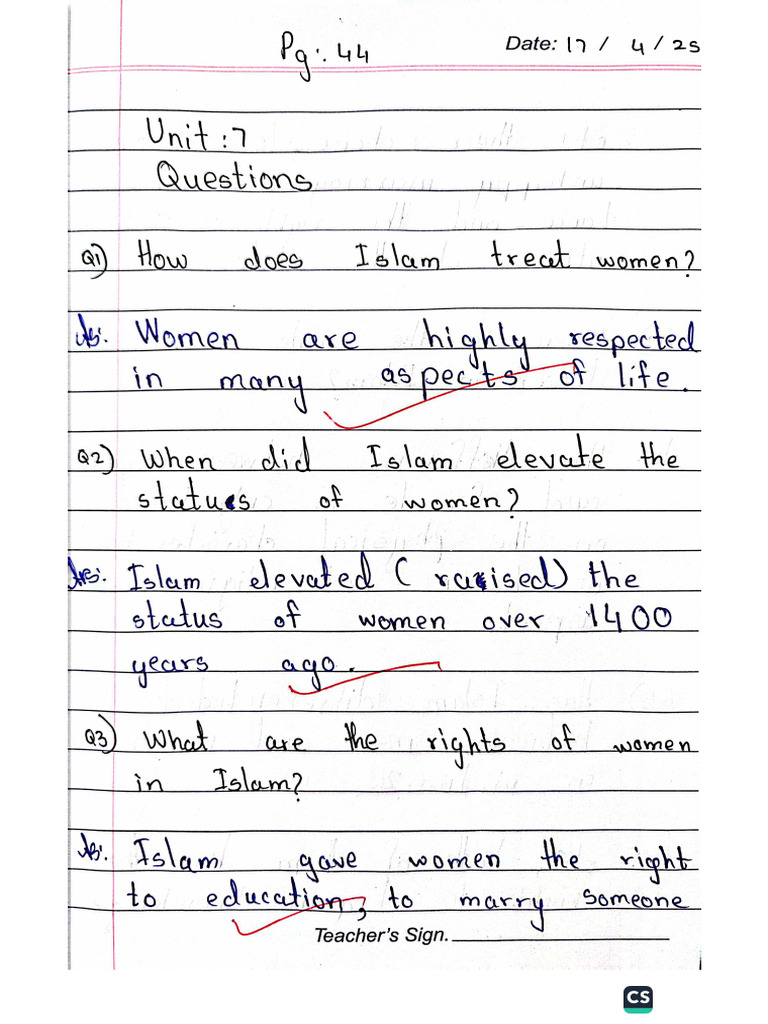 Pg:. 44
Date: 17 / 4 / 25
Unit : 7
Questions
Q1) How does Islam treat women?
As: Women are highly respected
in many aspects of life.
Q2) When did Islam elevate the
status of women?
As: Islam elevated ( raised) the
status of women over 1400
years ago.
Q3) What are the rights of women
in Islam?
As: Islam gave women the right
to education, to marry someone
Teacher's Sign.
CS